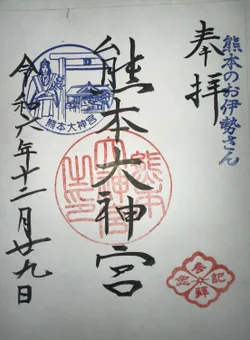 奉拝
熊本のお伊勢さん
熊本大神宮
熊本大神宮
熊本
大神宮
之印
令和六年十二月廿九日
参拝
記念